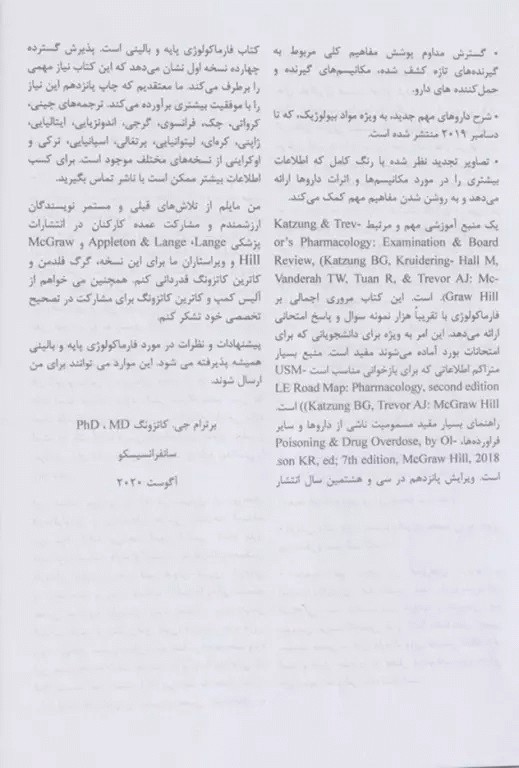 • گسترش مداوم پوشش مفاهیم کلی مربوط به
گیرنده‌های تازه کشف شده، مکانیسم‌های گیرنده و
حمل‌کننده های دارو.
• شرح داروهای مهم جدید، به ویژه مواد بیولوژیک، که تا
دسامبر ۲۰۱۹ منتشر شده است.
• تصاویر تجدید نظر شده با رنگ کامل که اطلاعات
بیشتری را در مورد مکانیسم‌ها و اثرات داروها ارائه
می‌دهد و به روشن شدن مفاهیم مهم کمک می‌کند.
یک منبع آموزشی مهم و مرتبط Katzung & Trev-
or's Pharmacology: Examination & Board
Review, (Katzung BG, Kruidering- Hall M,
Vanderah TW, Tuan R, & Trevor AJ: Mc-
Graw Hill). است. این کتاب مروری اجمالی بر
فارماکولوژی با تقریباً هزار نمونه سوال و پاسخ امتحانی
ارائه می‌دهد. این امر به ویژه برای دانشجویانی که برای
امتحانات بورد آماده می‌شوند مفید است. منبع بسیار
متراکم اطلاعاتی که برای بازخوانی مناسب است USM-
LE Road Map: Pharmacology, second edition
Katzung BG, Trevor AJ: McGraw Hill)) است.
راهنمای بسیار مفید مسمومیت ناشی از داروها و سایر
فراورده‌ها، Poisoning & Drug Overdose, by Ol-
son KR, ed; 7th edition, McGraw Hill, 2018.
است. ویرایش پانزدهم در سی و هشتمین سال انتشار
کتاب فارماکولوژی پایه و بالینی است. پذیرش گسترده
چهارده نسخه اول نشان می‌دهد که این کتاب نیاز مهمی
را برطرف می‌کند. ما معتقدیم که چاپ پانزدهم این نیاز
را با موفقیت بیشتری برآورده می‌کند. ترجمه‌های چینی،
کرواتی، چک، فرانسوی، گرجی، اندونزیایی، ایتالیایی،
ژاپنی، کره‌ای، لیتوانیایی، پرتغالی، اسپانیایی، ترکی و
اوکراینی از نسخه‌های مختلف موجود است. برای کسب
اطلاعات بیشتر ممکن است با ناشر تماس بگیرید.
من مایلم از تلاش‌های قبلی و مستمر نویسندگان
ارزشمندم و مشارکت عمده کارکنان در انتشارات
پزشکی Lange، Appleton & Lange و McGraw
Hill و ویراستاران ما برای این نسخه، گرگ فلدمن و
کاترین کاتزونگ قدردانی کنم. همچنین می خواهم از
آلیس کمپ و کاترین کاتزونگ برای مشارکت در تصحیح
تخصصی خود تشکر کنم.
پیشنهادات و نظرات در مورد فارماکولوژی پایه و بالینی
همیشه پذیرفته می شود. این موارد می توانند برای من
ارسال شوند.
برترام جی. کاتزونگ PhD ، MD
سانفرانسیسکو
آگوست ۲۰۲۰